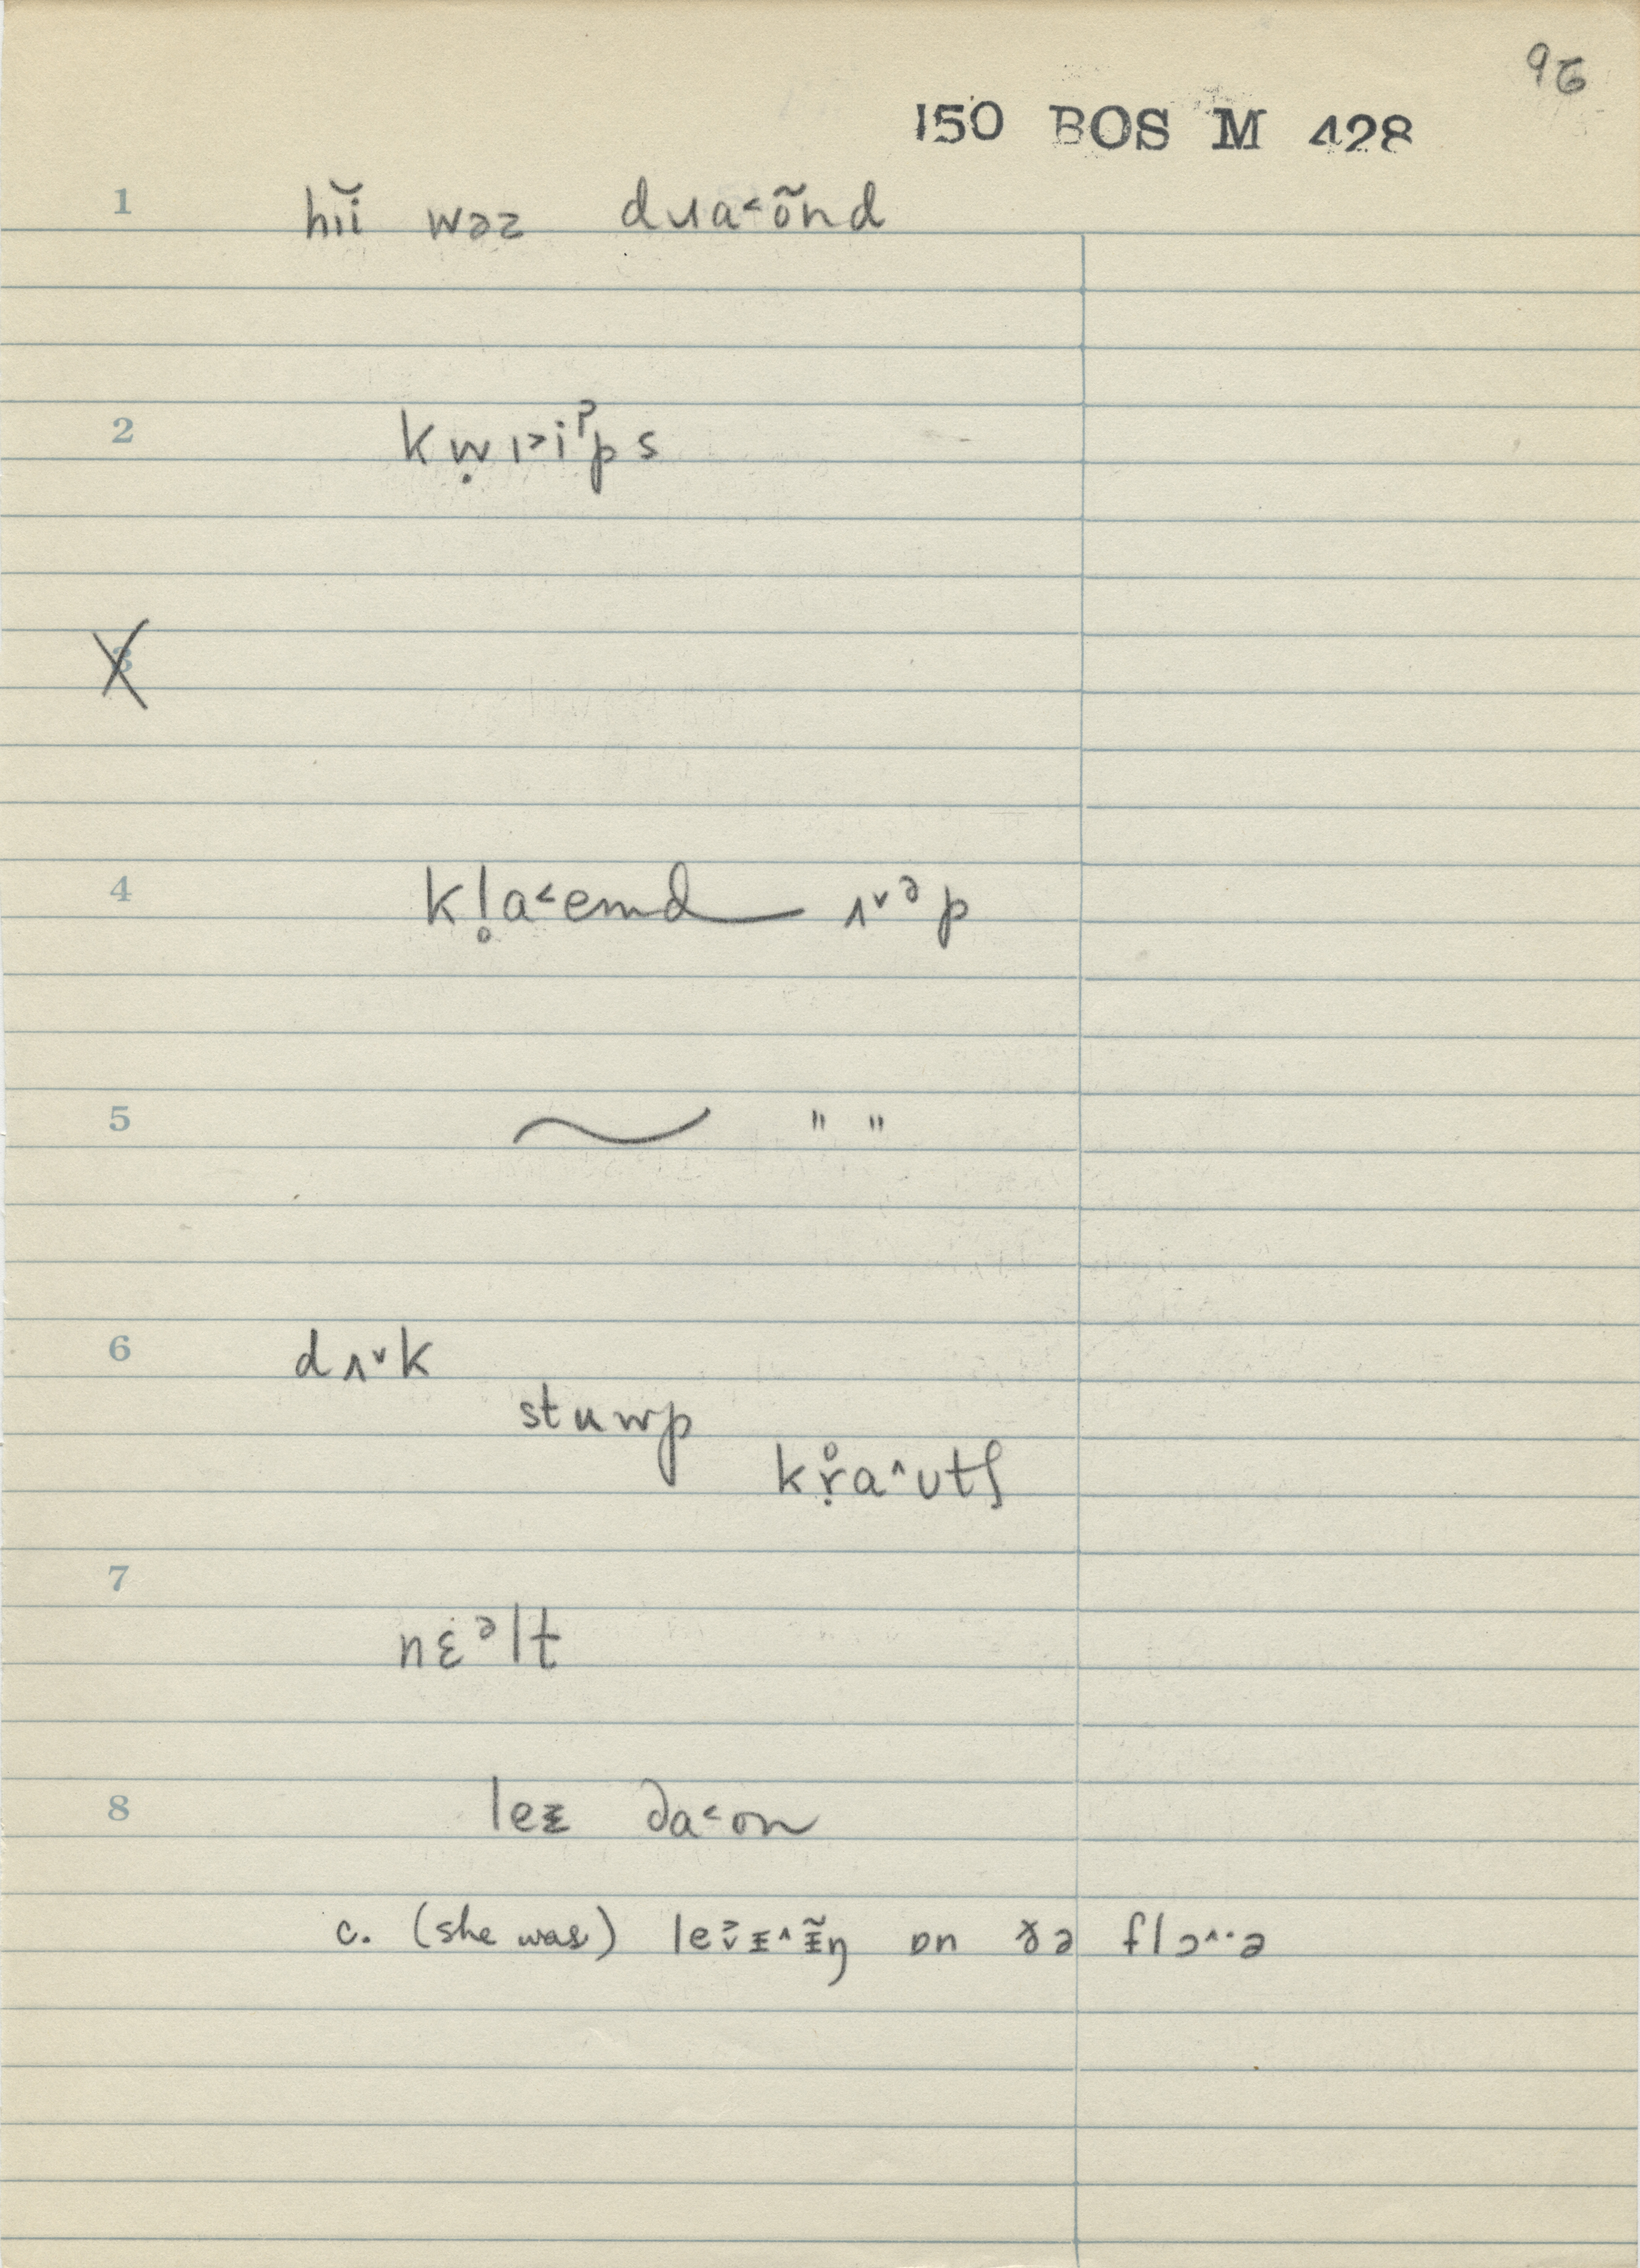 96
150 BOS M 428
1 hɪĭ wəz dɹa˂õnd
2 kẉɪ˃iˀps
3
4 kl̥a˂emd ʌ˅ᵊp
5 ~ " "
6 dʌ˅k
stuwp
kṛ̊a˄ʊtʃ
7 nɛ̇ᵊlt
8 leᵻ da˂on
c. (she was) leᵻ˄ᵻ̃ŋ ɒn ðə flɔ˄·ə